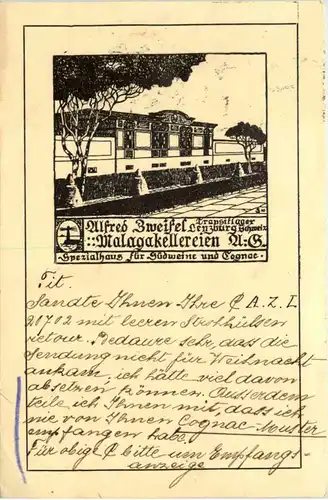 Alfred Zweifel Transitlager
Lenzburg Schweiz
::Malagakellereien A:G.
Spezialhaus für Südweine und Cognac.
Tit.
Sandte Ihnen Ihre C A.Z.L
20702 mit leeren Strohhülsen
retour. Bedaure sehr, dass die
Sendung nicht für Weihnacht
ankam, ich hätte viel davon
absetzen können. Ausserdem
teile ich Ihnen mit, dass ich
nie von Ihnen Cognac-Muster
empfangen habe.
Für obige C bitte um Empfangs-
anzeige